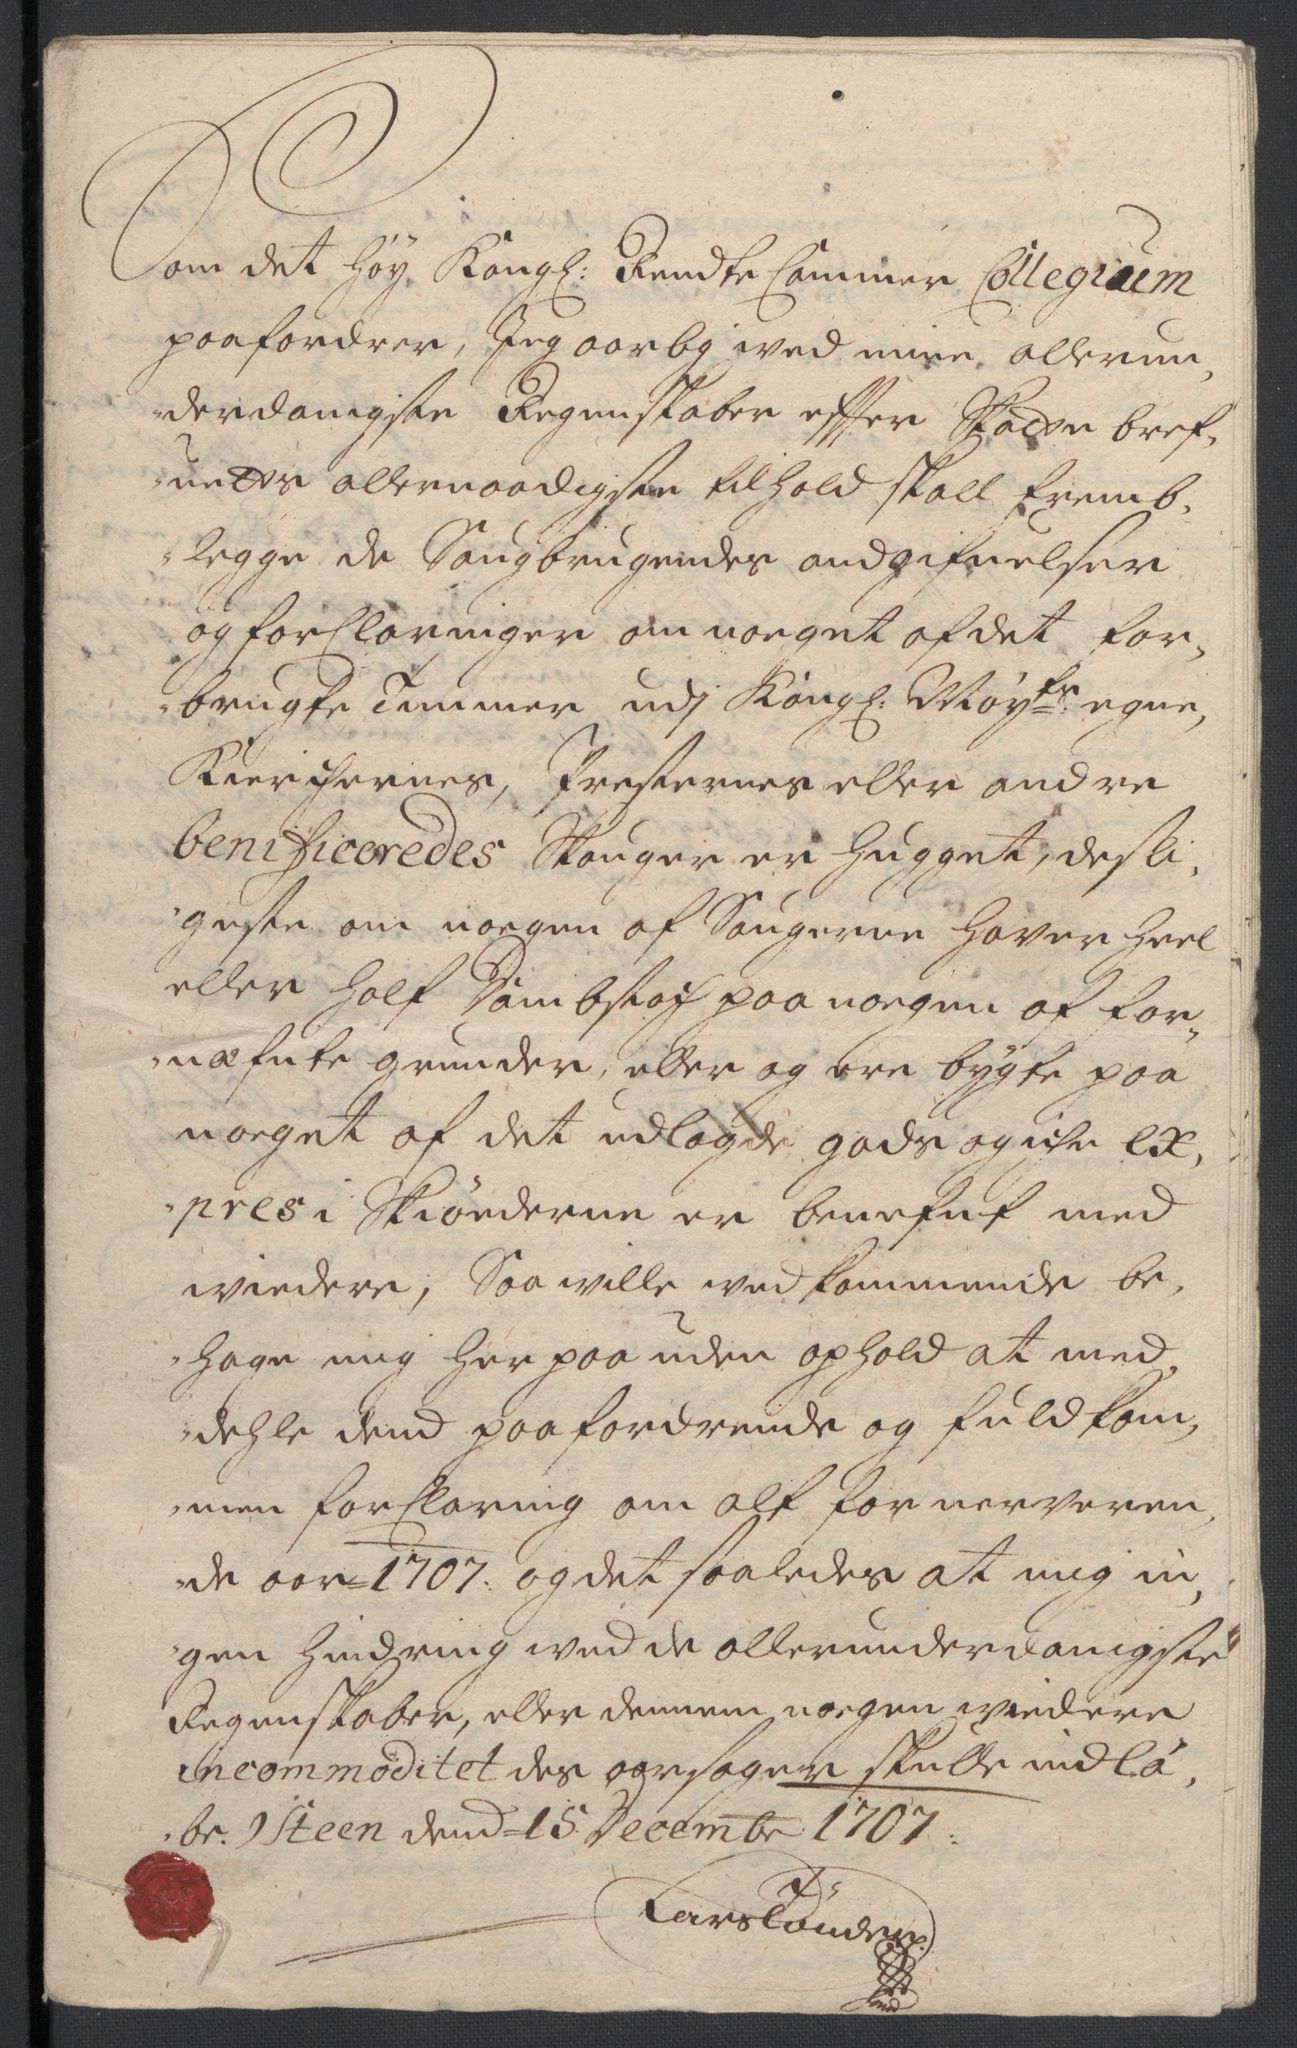 Som det höy Kongl: Rendte Cammer Collegium
paafordrer, Jeg aarlig ved mine allerun,
-derdanigste Regenskaber efter
allernaadigste tilhold skall fremb,
-legge de Saugbrugendes andgifuelser
og forklaringer om noeget af det for,
-brugte Timmer udj Kongl: Mayts: egne,
Kierchernes, Presternes eller andre
benificeredes Skouger er hugget, desli,
-geste om noegen af Saugerne haver heel
eller half Dambstoch paa noegen af for,
-næfnte grunder, eller og ere bygte paa
noeget af det udlagde gods og iche ex,
-pres i Skiöderne er benefnt med
viedere, Saa ville vedkommende be,
-hage mig her paa uden ophold at med,
-dehle dend paafordrende og fuldkom,
-men forklaring om alt for nerveren,
-de aar 1707. og det saaledes at mig in,
-gen hindring ved de allerunderdanigste
Regenskaber, eller dennem noegen viedere
incommoditet des aarsager skulle indlö,
-be. Steen dend 15 December 1707.